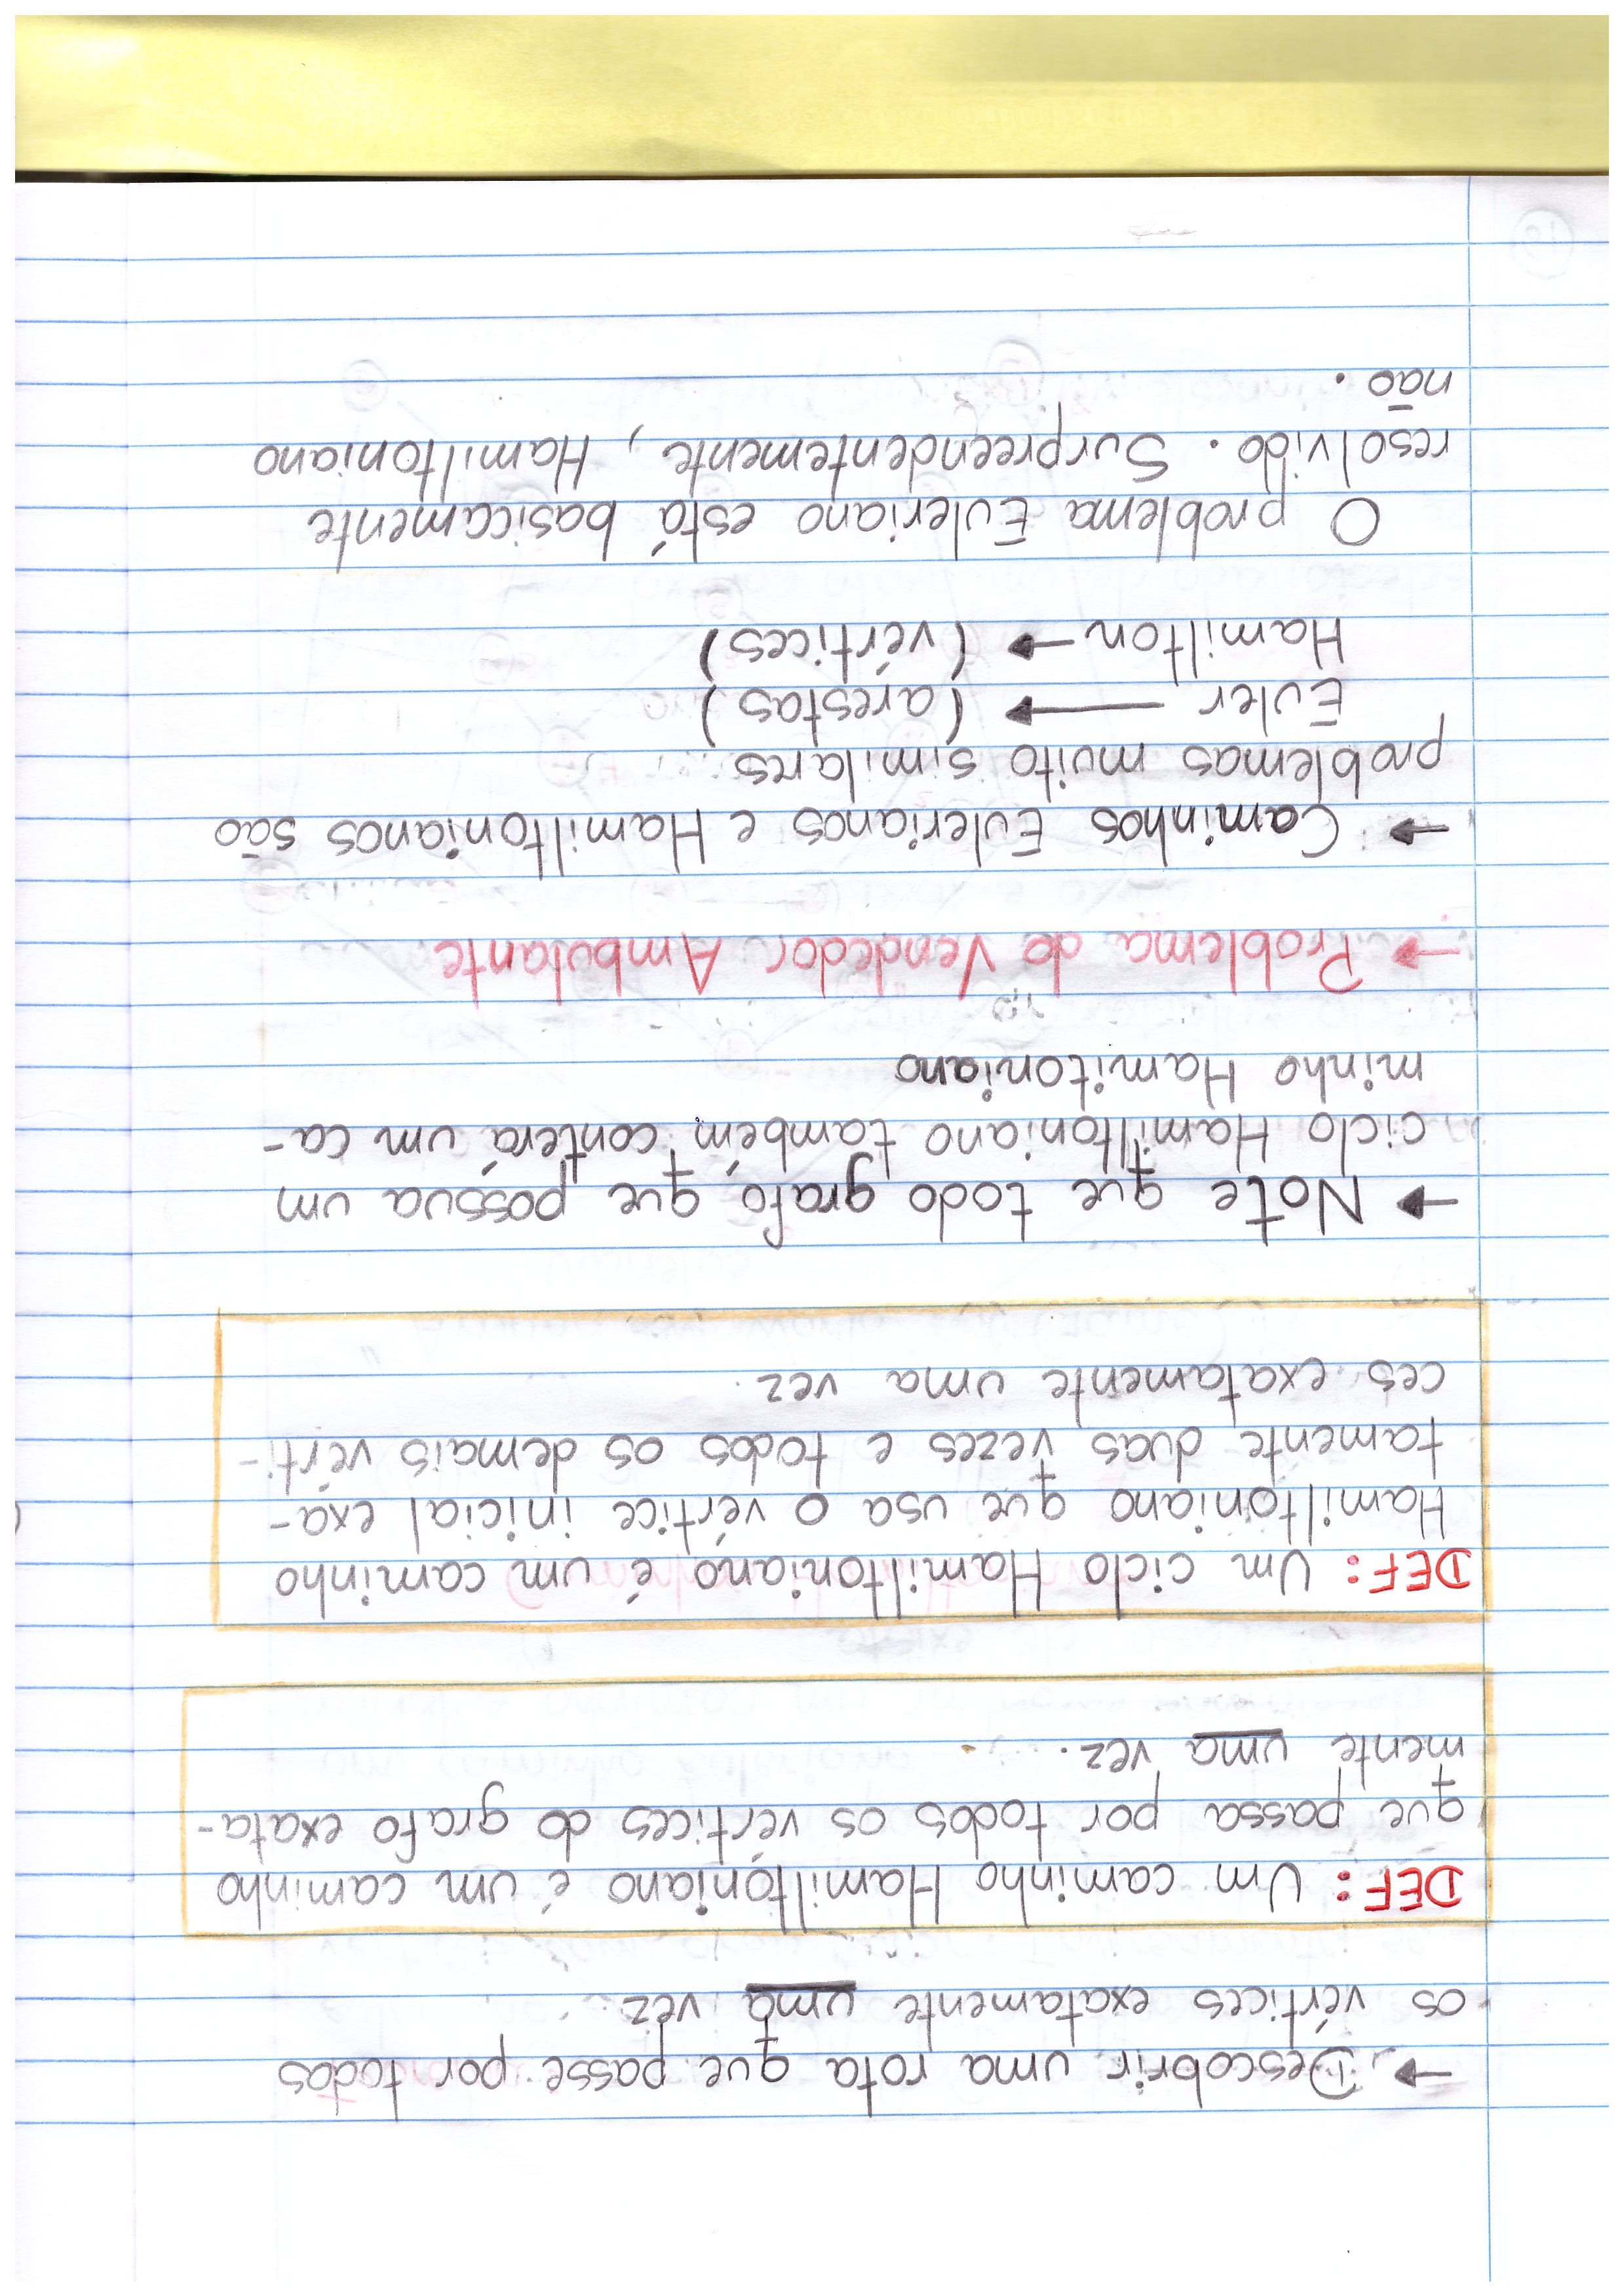 → Descobrir uma rota que passe por todos
os vértices exatamente uma vez.
DEF: Um caminho Hamiltoniano é um caminho
que passa por todos os vértices do grafo exata-
mente uma vez.
DEF: Um ciclo Hamiltoniano é um caminho
Hamiltoniano que usa o vértice inicial exa-
tamente duas vezes e todos os demais vérti-
ces exatamente uma vez.
→ Note que todo grafo que possua um
ciclo Hamiltoniano também conterá um ca-
minho Hamitoniano
→ Problema do Vendedor Ambulante
→ Caminhos Eulerianos e Hamiltonianos são
problemas muito similares
Euler → (arestas)
Hamilton → (vértices)
O problema Euleriano está basicamente
resolvido. Surpreendentemente, Hamiltoniano
não.